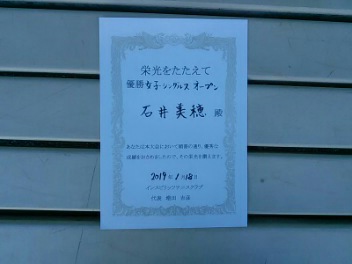 栄光をたたえて
優勝 女子シングルス オープン
石井美穂 殿
あなたは本大会において頭書の通り、優秀な
成績をおさめましたので、その栄光を称えます。
2019年1月18日
代表